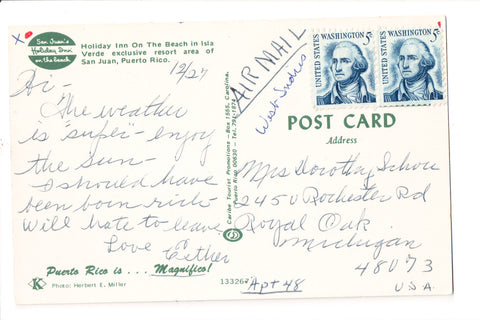 San Juan's
Holiday Inn
on the Beach
Holiday Inn On The Beach in Isla
Verde exclusive resort area of
San Juan, Puerto Rico.
12/27
Hi -
The weather
is "super" - enjoy
the Sun -
I should have
been born rich -
Will hate to leave
Love Esther
Puerto Rico is . . . Magnifico!
K
Photo: Herbert E. Miller
133267
Caribe Tourist Promotions - Box 1555, Carolina,
Puerto Rico 00630 - Tel.
AIR MAIL
West Indies
UNITED STATES WASHINGTON 5c
UNITED STATES WASHINGTON 5c
POST CARD
Address
Mrs Dorothy
2450 Rochester Rd
Royal Oak
Michigan
48073
Apt 48
U.S.A.